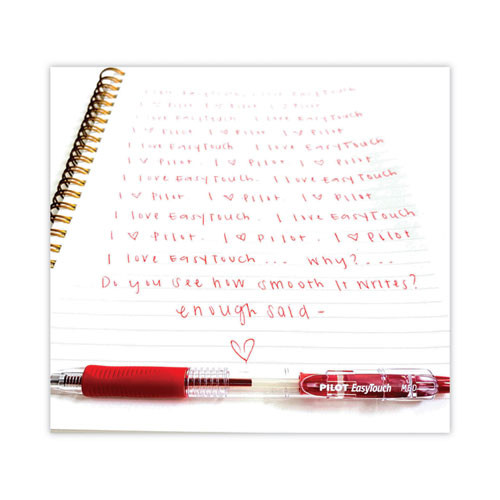 I love EasyTouch
I ♡ Pilot I ♡ Pilot I ♡ Pilot
I love EasyTouch I love EasyTouch
I ♡ Pilot I ♡ Pilot I ♡ Pilot
I love EasyTouch I love EasyTouch.
I ♡ Pilot. I ♡ Pilot I ♡ Pilot
I love EasyTouch. I love EasyTouch
I ♡ Pilot. I ♡ Pilot I ♡ Pilot
I love EasyTouch. I love EasyTouch
I ♡ Pilot. I ♡ Pilot. I ♡ Pilot
I love EasyTouch... Why?...
Do you see how smooth it writes?
enough said -
♡
PILOT EasyTouch MED